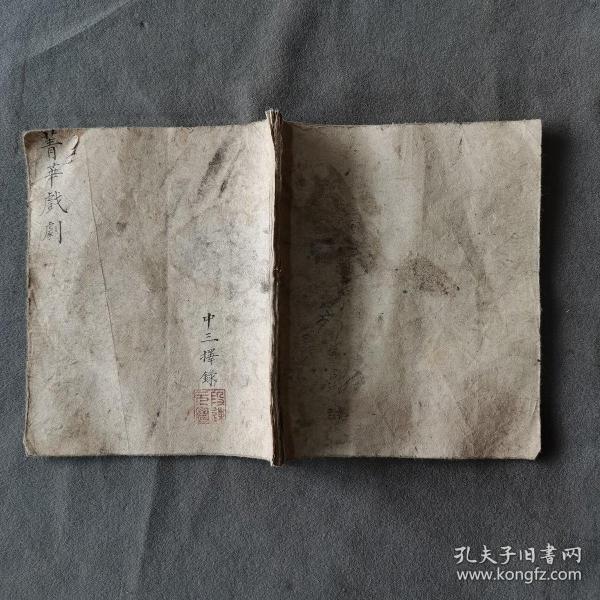 菁華戲劇
中三擇錄
孔夫子旧书网
www.kongfz.com